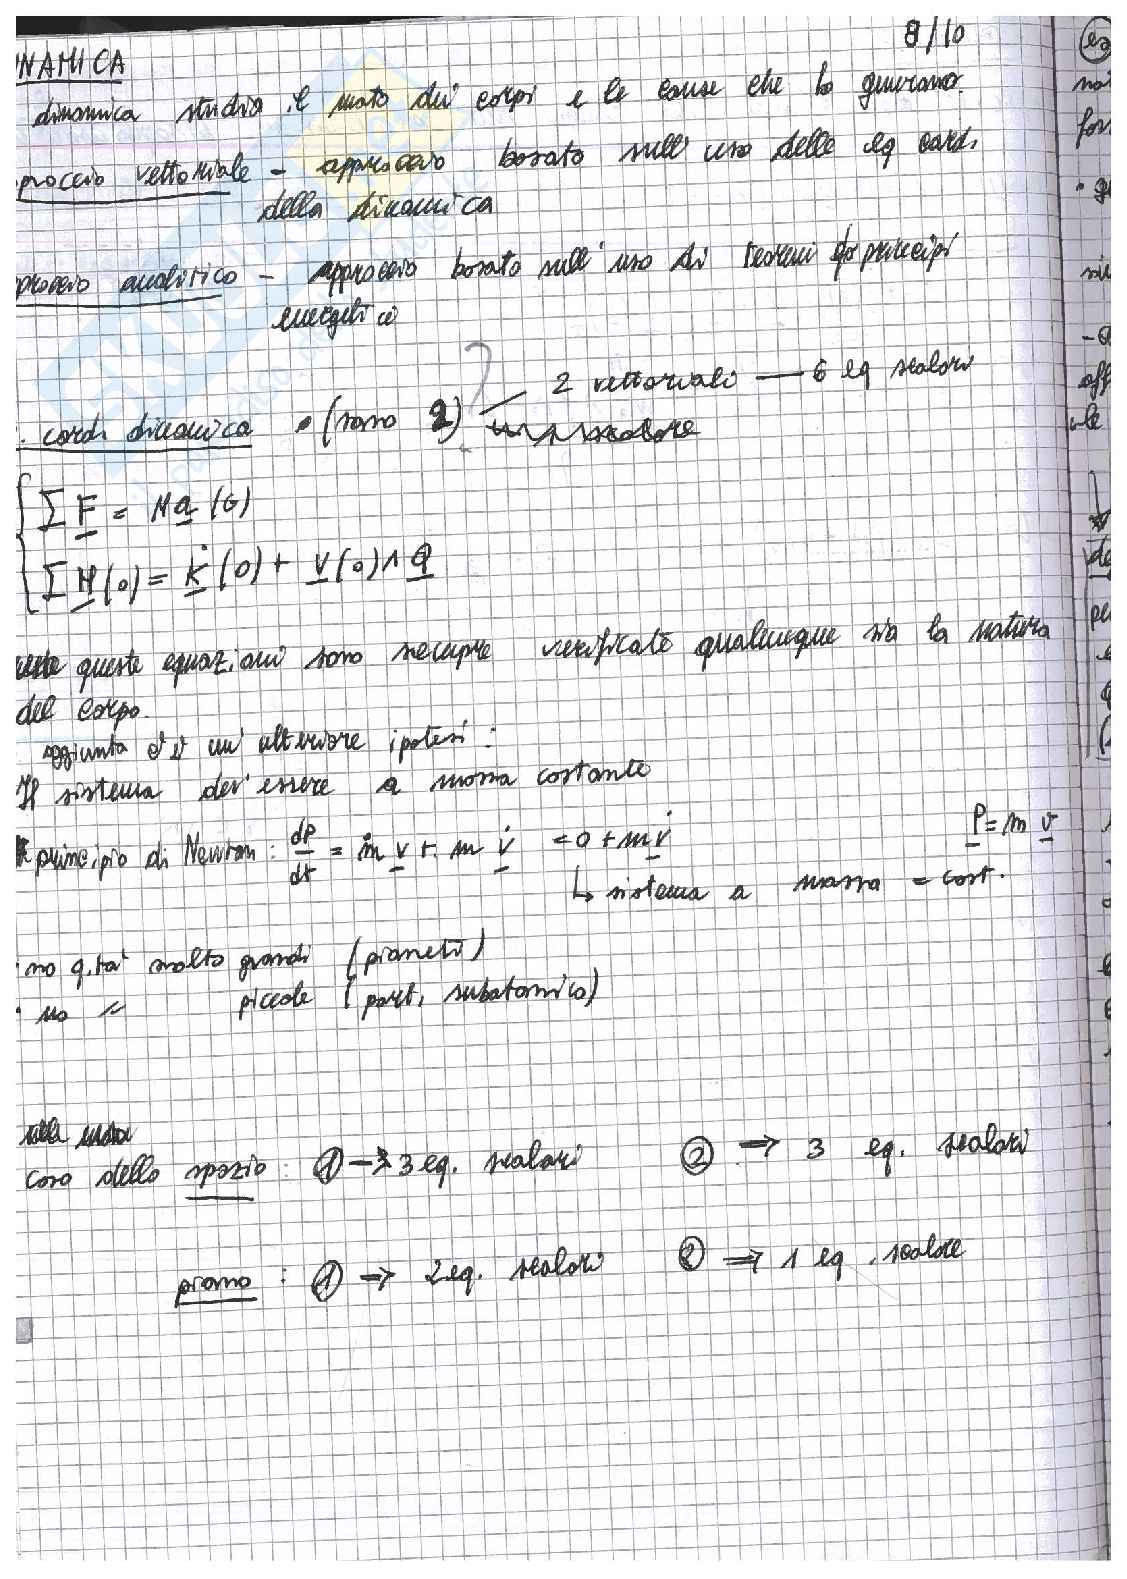 8/10
INAMICA
dinamica studia il moto dei corpi e le cause che lo generano.
proccio vettoriale - approccio basato sull'uso delle eq card.
della dinamica
proccio analitico - approccio basato sull'uso di teoremi o principi
energetici
. card. dinamica • (sono 2) 2 vettoriali — 6 eq scalari
scalare
Σ F = M a (G)
Σ M (o) = K̇ (o) + V (o) ∧ Q
queste equazioni sono sempre verificate qualunque sia la natura
del corpo.
aggiunta c'è un'ulteriore ipotesi :
Il sistema dev'essere a massa costante
principio di Newton : dP/dt = ṁ v + m v̇ = 0 + m v̇ P = m v
↳ sistema a massa = cost.
· no q.tà molto grandi (pianeti)
· no " piccole ( part. subatomico)
caso dello spazio : ① → 3 eq. scalari ② ⇒ 3 eq. scalari
piano : ① ⇒ 2 eq. scalari ② ⇒ 1 eq. scalare